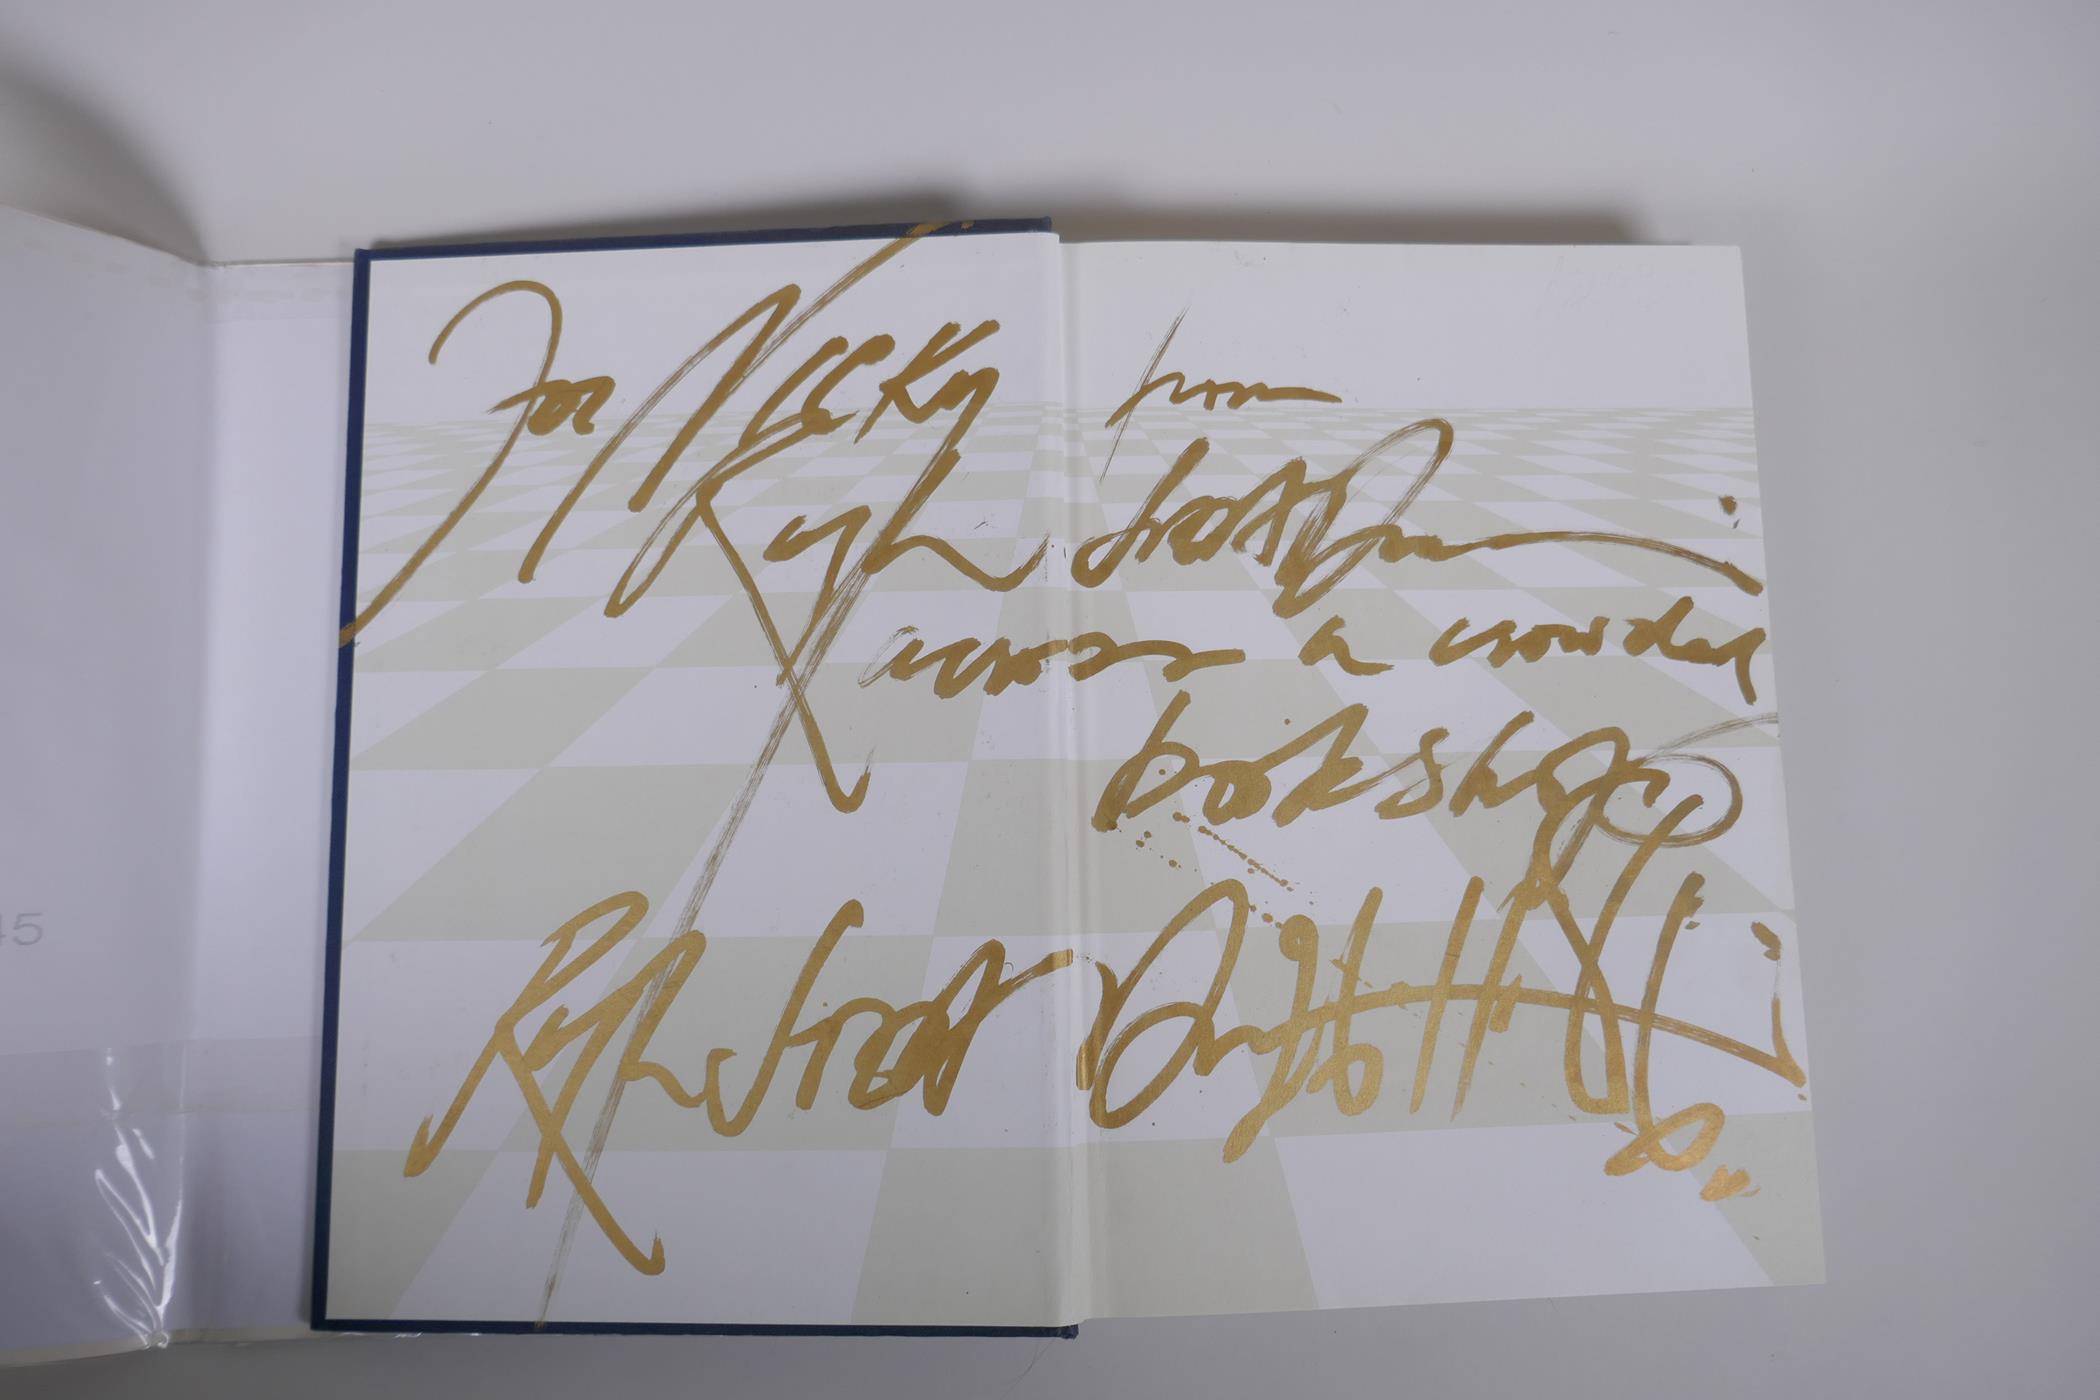 For Nicky from
Ralph STEADman
across a crowded
bookshop
Ralph STEADman
45